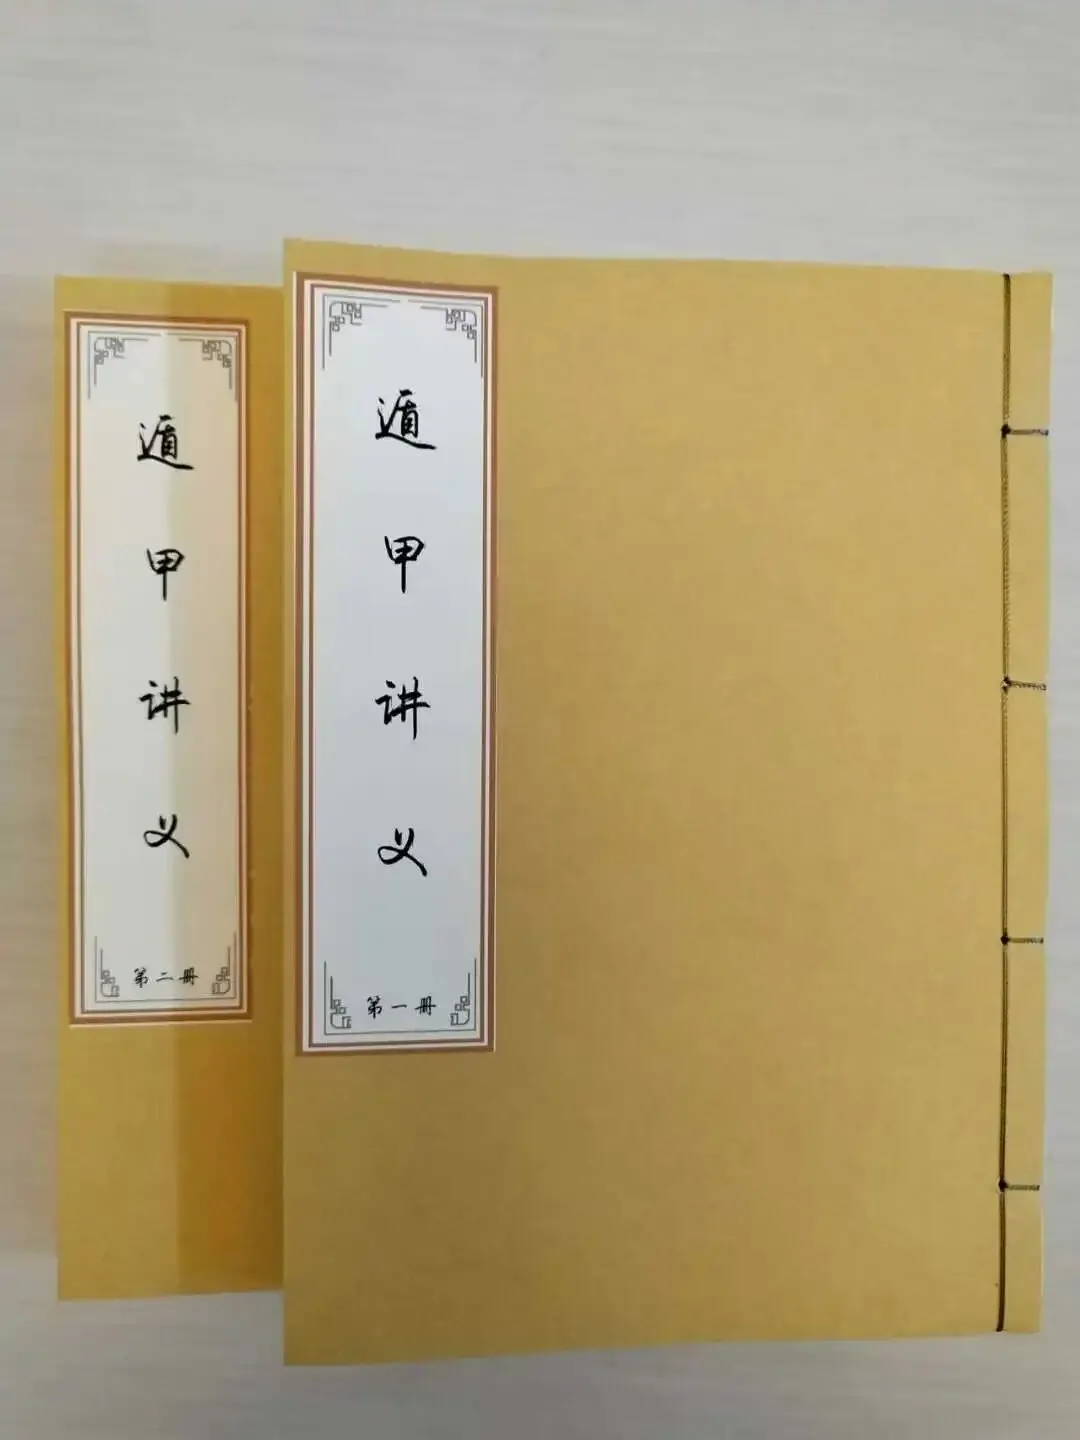 遁甲讲义
第二册
遁甲讲义
第一册